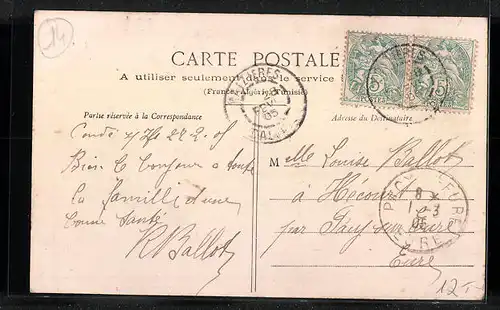 14
CARTE POSTALE
A utiliser seulement dans le service
(France, Algérie, Tunisie)
Partie réservée à la Correspondance
Adresse du Destinataire
22.2.05
Bien le bonjour a toute
la famille et une
bonne santé
R Ballot
Melle Louise Ballot
à Hécourt
par Pacy sur Eure
Eure
5
5
FEVR
05
8
3
05
EURE
12.-